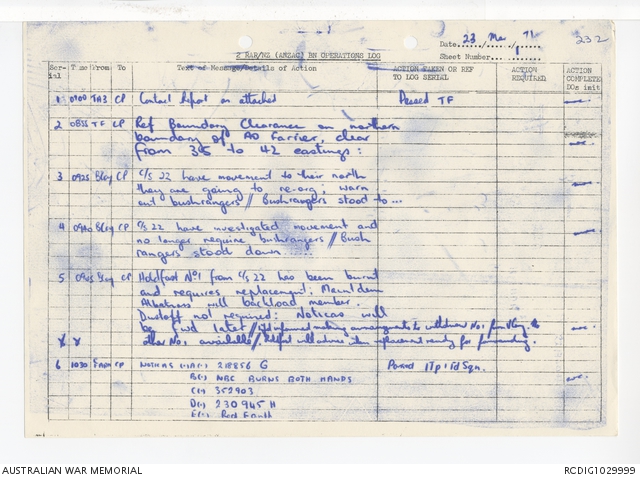 Date 23 Mar 71
232
2 RAR/NZ (ANZAC) BN OPERATIONS LOG
Sheet Number
Serial Time From To Text of Message/Details of Action ACTION TAKEN OR REF TO LOG SERIAL ACTION REQUIRED ACTION COMPLETE DOs init
1 0100 TA3 CP Contact Report as attached Passed TF
2 0855 TF CP Ref Boundary Clearance on northern
boundary of AO Farrier, clear
from 35 to 42 eastings:
3 0925 CP C/S 22 have movement to their north
they are going to re-org; warn
out bushrangers // Bushrangers stood to ...
4 0940 CP C/S 22 have investigated movement and
no longer require bushrangers // Bush
rangers stood down
5 CP Holdfast No1 from C/S 22 has been burnt
and requires replacement:
Albatross will backload member.
Dustoff not required: Noticas will
be fwd later // informed making arrangements to withdraw No1 from
other No1 available // will advise when replacement ready for forwarding.
6 1030 CP NOTICAS 218856 G Passed 1Tp 1Fd Sqn.
B(·) NBC BURNS BOTH HANDS
C(·) 352903
D(·) 230945 H
E(·) Red Earth
AUSTRALIAN WAR MEMORIAL
RCDIG1029999